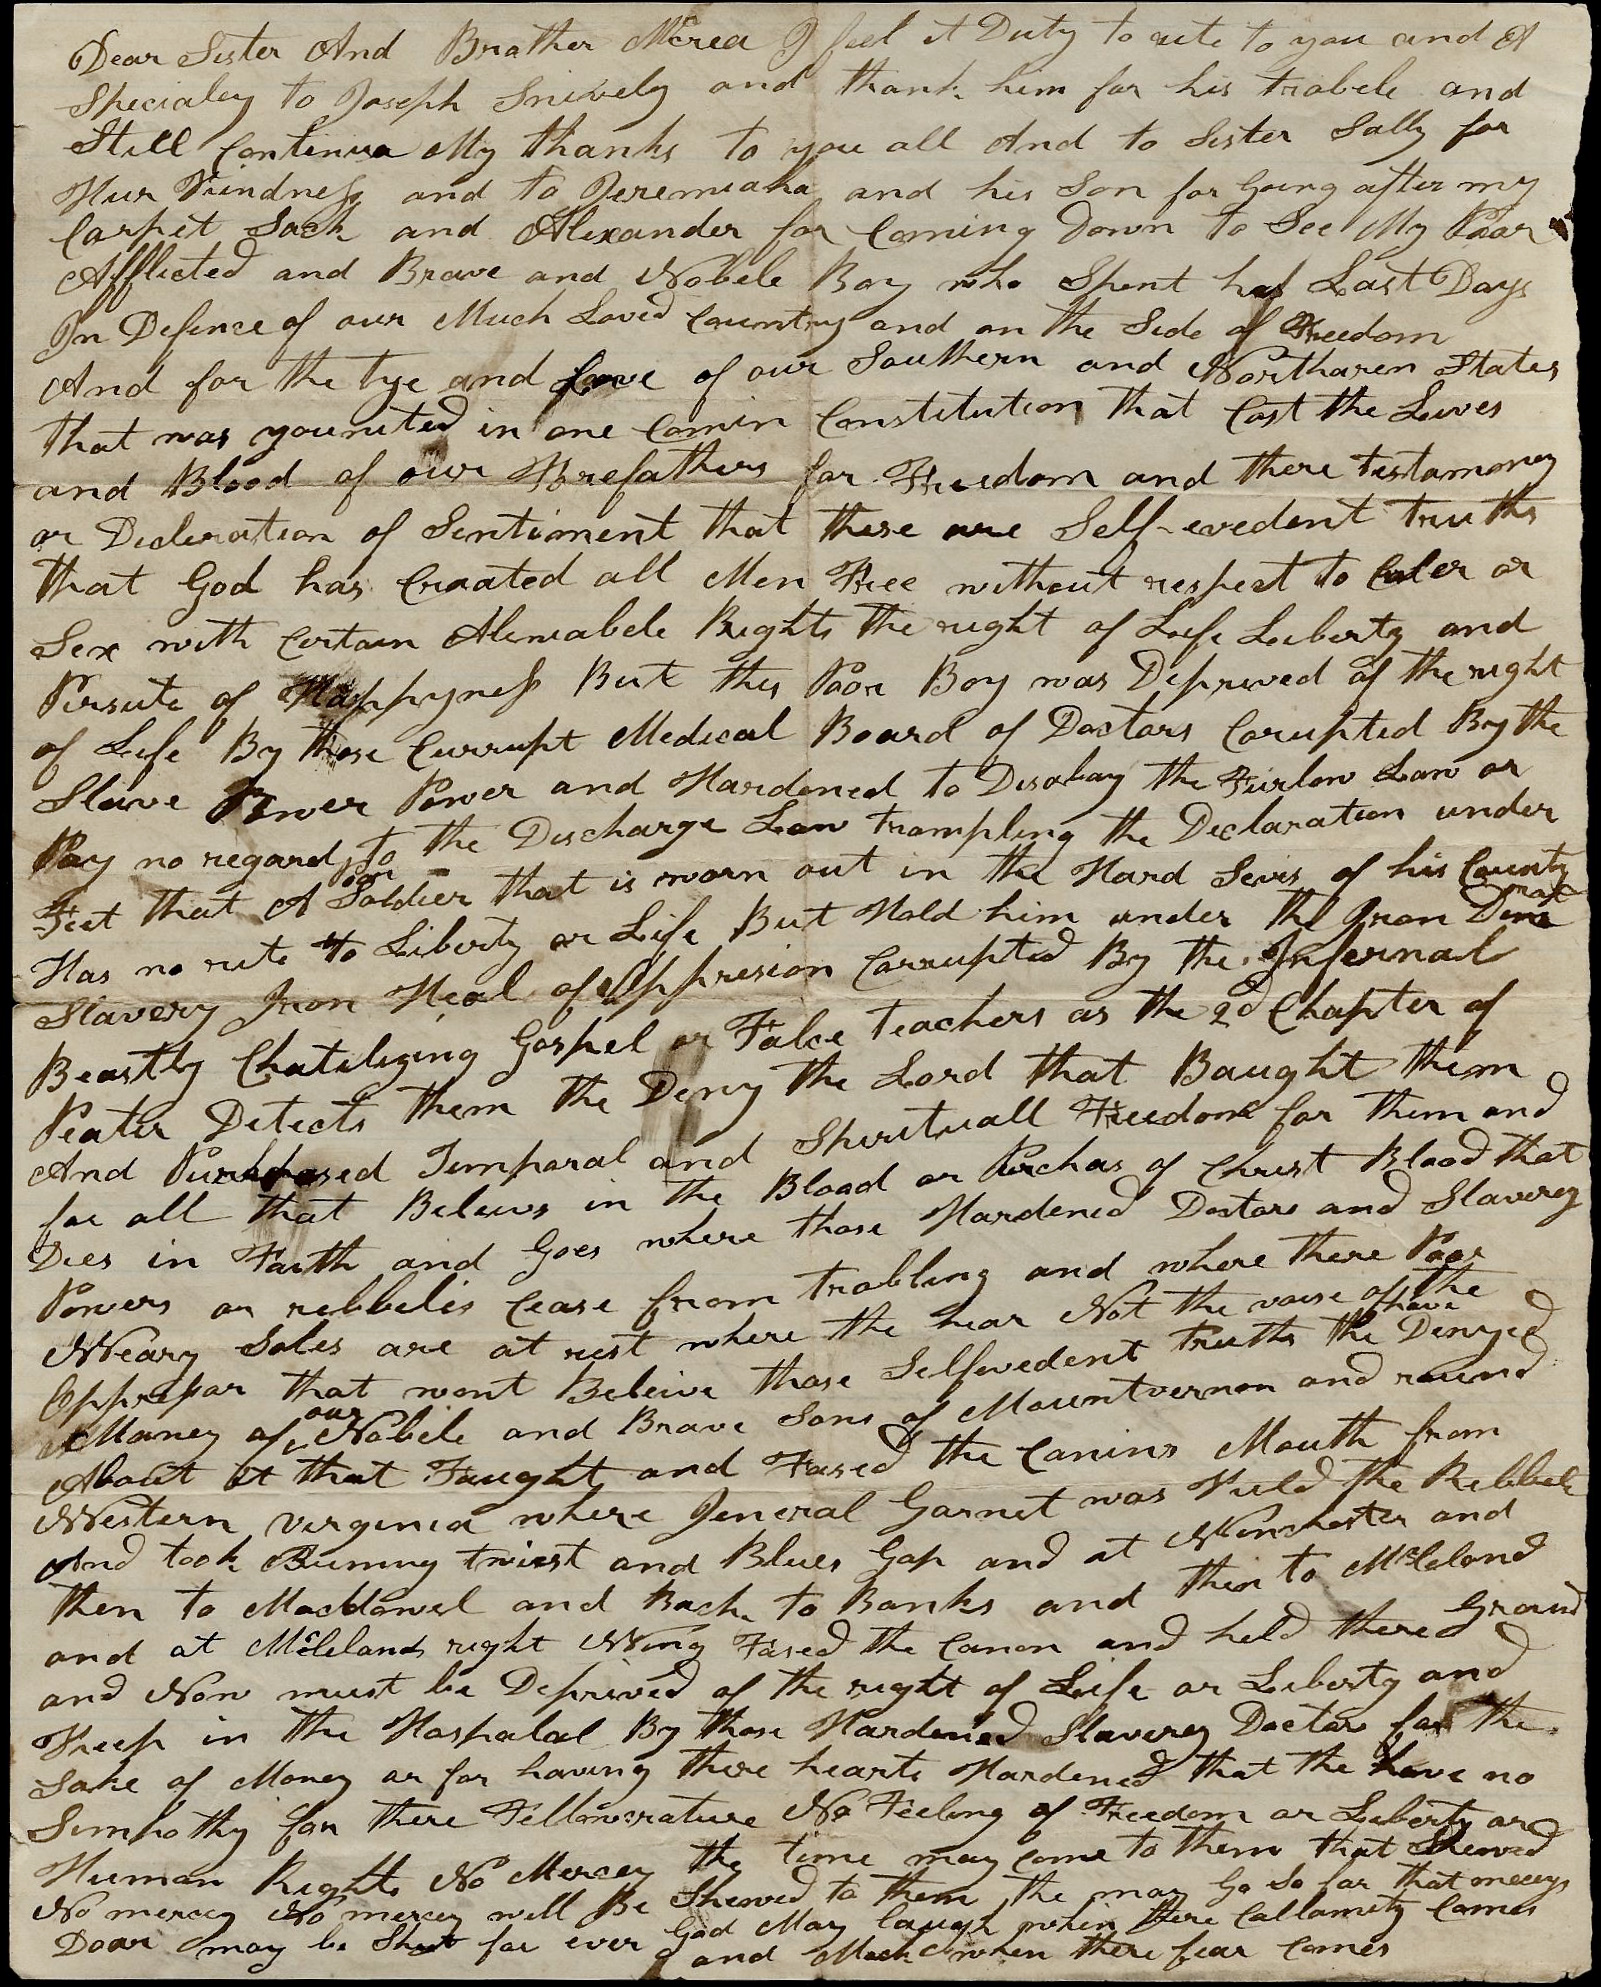 Dear Sister And Brother McCrea I feel it Duty to rite to you and A
Specialey to Joseph Snively and thank him for his trobele and
Still Continua My thanks to you all And to Sister Sally for
Hur Kindness and to Jeremiaha and his Son for Going after my
Carpit Sack and Alexander for Coming Down to See My Poor
Afflicted and Brave and Nobele Boy who Spent his Last Days
In Defence of our Much Loved Country and on the Side of Freedom
And for the tye and love of our Southern and Northaren States
that was younited in one Comin Constitution that Cost the Lives
and Blood of our Forefathers for Freedom and there testamoney
or Decleration of Sentiment that these are Self-evedent truths
that God has Craated all Men Free without respect to Culer or
Sex with Certain Aleniabele Rights the right of Life Liberty and
Persute of Happyness But this Poor Boy was Deprived of the right
of Life By those Currupt Medical Board of Doctors Corupted By the
Slave Power Power and Hardened to Disobay the Furlow Law or
Pay no regard to the Discharge Law trampling the Declaration under
Feet that A Poor Soldier that is worn out in the Hard Sevis of his County
Has no rite to Liberty or Life But Hold him under the Iron
Slavery Iron Heal of Oppresion Corrupted By the Infernal
Beastly Chatilizing Gospel or False teachers as the 2d Chapter of
Peater Detects them the Deny the Lord that Baught them
And Purchased Temporal and Spirituall Freedom for them and
for all that Belives in the Blood or Purchas of Christ Blood that
Dies in Faith and Goes where those Hardened Doctors and Slaverey
Powers or rebbelis Cease from trobling and where there Poor
Weary Soles are at rest where the hear Not the voise of the
Oppressor that wont Beleive those Selfevedent truths the have Denyed
Maney of our Nobele and Brave Sons of Mountvernon and round
About it that Faught and Fased the Canins Mouth from
Western Virginia where Jeneral Garnet was Kield the Rebbele
And took Rumny twist and Blues Gap and at Winchester and
then to Macdowel and Back to Banks and then to McCleland
and at McClelands right Wing Fased the Canon and held there Ground
and Now must be Deprived of the right of Life or Liberty and
Keep in the Hospatal By those Hardened Slaverey Doctors for the
Sake of Money or for having there hearts Hardened that the have no
Simpothy for there Fellowcrature No Feeling of Freedom or Liberty or
Human Rights No Mercey the time may come to them that Shewed
No mercey No mercey will Be Shewed to them the may Go So far that merceys
Door may be Shut for ever God May laugh when there Callamity Comes
and Mock when there fear Comes